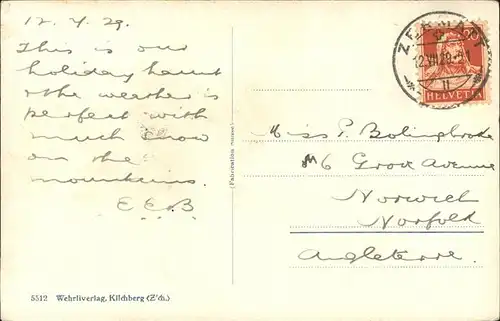 12.7.29.
This is our
holiday haunt
& the weather is
perfect with
much snow
on the
mountains.
E E B
(Fabrication suisse)
ZERMATT
12.VII.29
HELVETIA
Miss P. Bolingbroke
6 Grove Avenue
Norwich
Norfolk
Angleterre.
5512 Wehrliverlag, Kilchberg (Z'ch.)